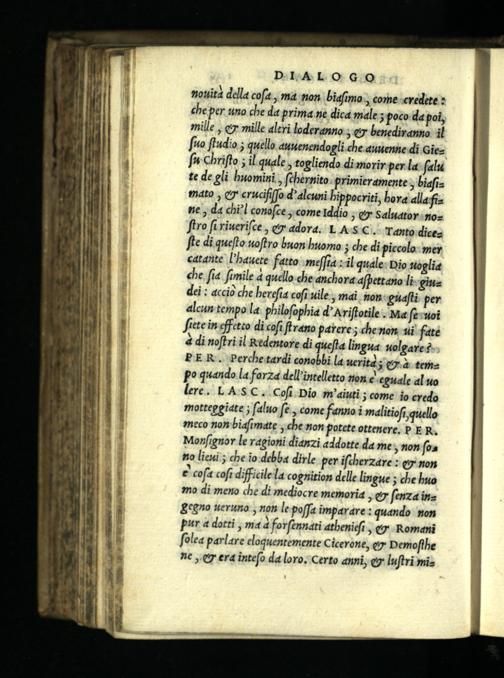 DIALOGO
novità della cosa, ma non biasimo, come credete:
che per uno che da prima ne dica male; poco da poi,
mille, & mille altri loderanno, & benediranno il
suo studio; quello auuenendogli che auuenne di Gie=
su Christo; il quale, togliendo di morir per la salu
te de gli huomini, schernito primieramente, biasi=
mato, & crucifisso d'alcuni hippocriti, hora alla fi=
ne, da chi'l conosce, come Iddio, & Saluator no=
stro si riuerisce, & adora. LASC. Tanto dice=
ste di questo uostro buon huomo; che di piccolo mer
catante l'hauete fatto messia: il quale Dio uoglia
che sia simile à quello che anchora aspettano li giu=
dei: acciò che heresia cosi uile, mai non guasti per
alcun tempo la philosophia d'Aristotile. Ma se uoi
siete in effetto di cosi strano parere; che non ui fate
à di nostri il Redentore di questa lingua uolgare?
PER. Perche tardi conobbi la uerità; & à tem=
po quando la forza dell'intelletto non è eguale al uo
lere. LASC. Cosi Dio m'aiuti; come io credo
motteggiate; saluo se, come fanno i malitiosi, quello
meco non biasimate, che non potete ottenere. PER.
Monsignor le ragioni dianzi addotte da me, non so=
no lieui; che io debba dirle per ischerzare: & non
è cosa cosi difficile la cognition delle lingue; che huo
mo di meno che di mediocre memoria, & senza in=
gegno ueruno, non le possa imparare: quando non
pur a dotti, ma à forsennati atheniesi, & Romani
solea parlare eloquentemente Cicerone, & Demosthe
ne, & era inteso da loro. Certo anni, & lustri mi=